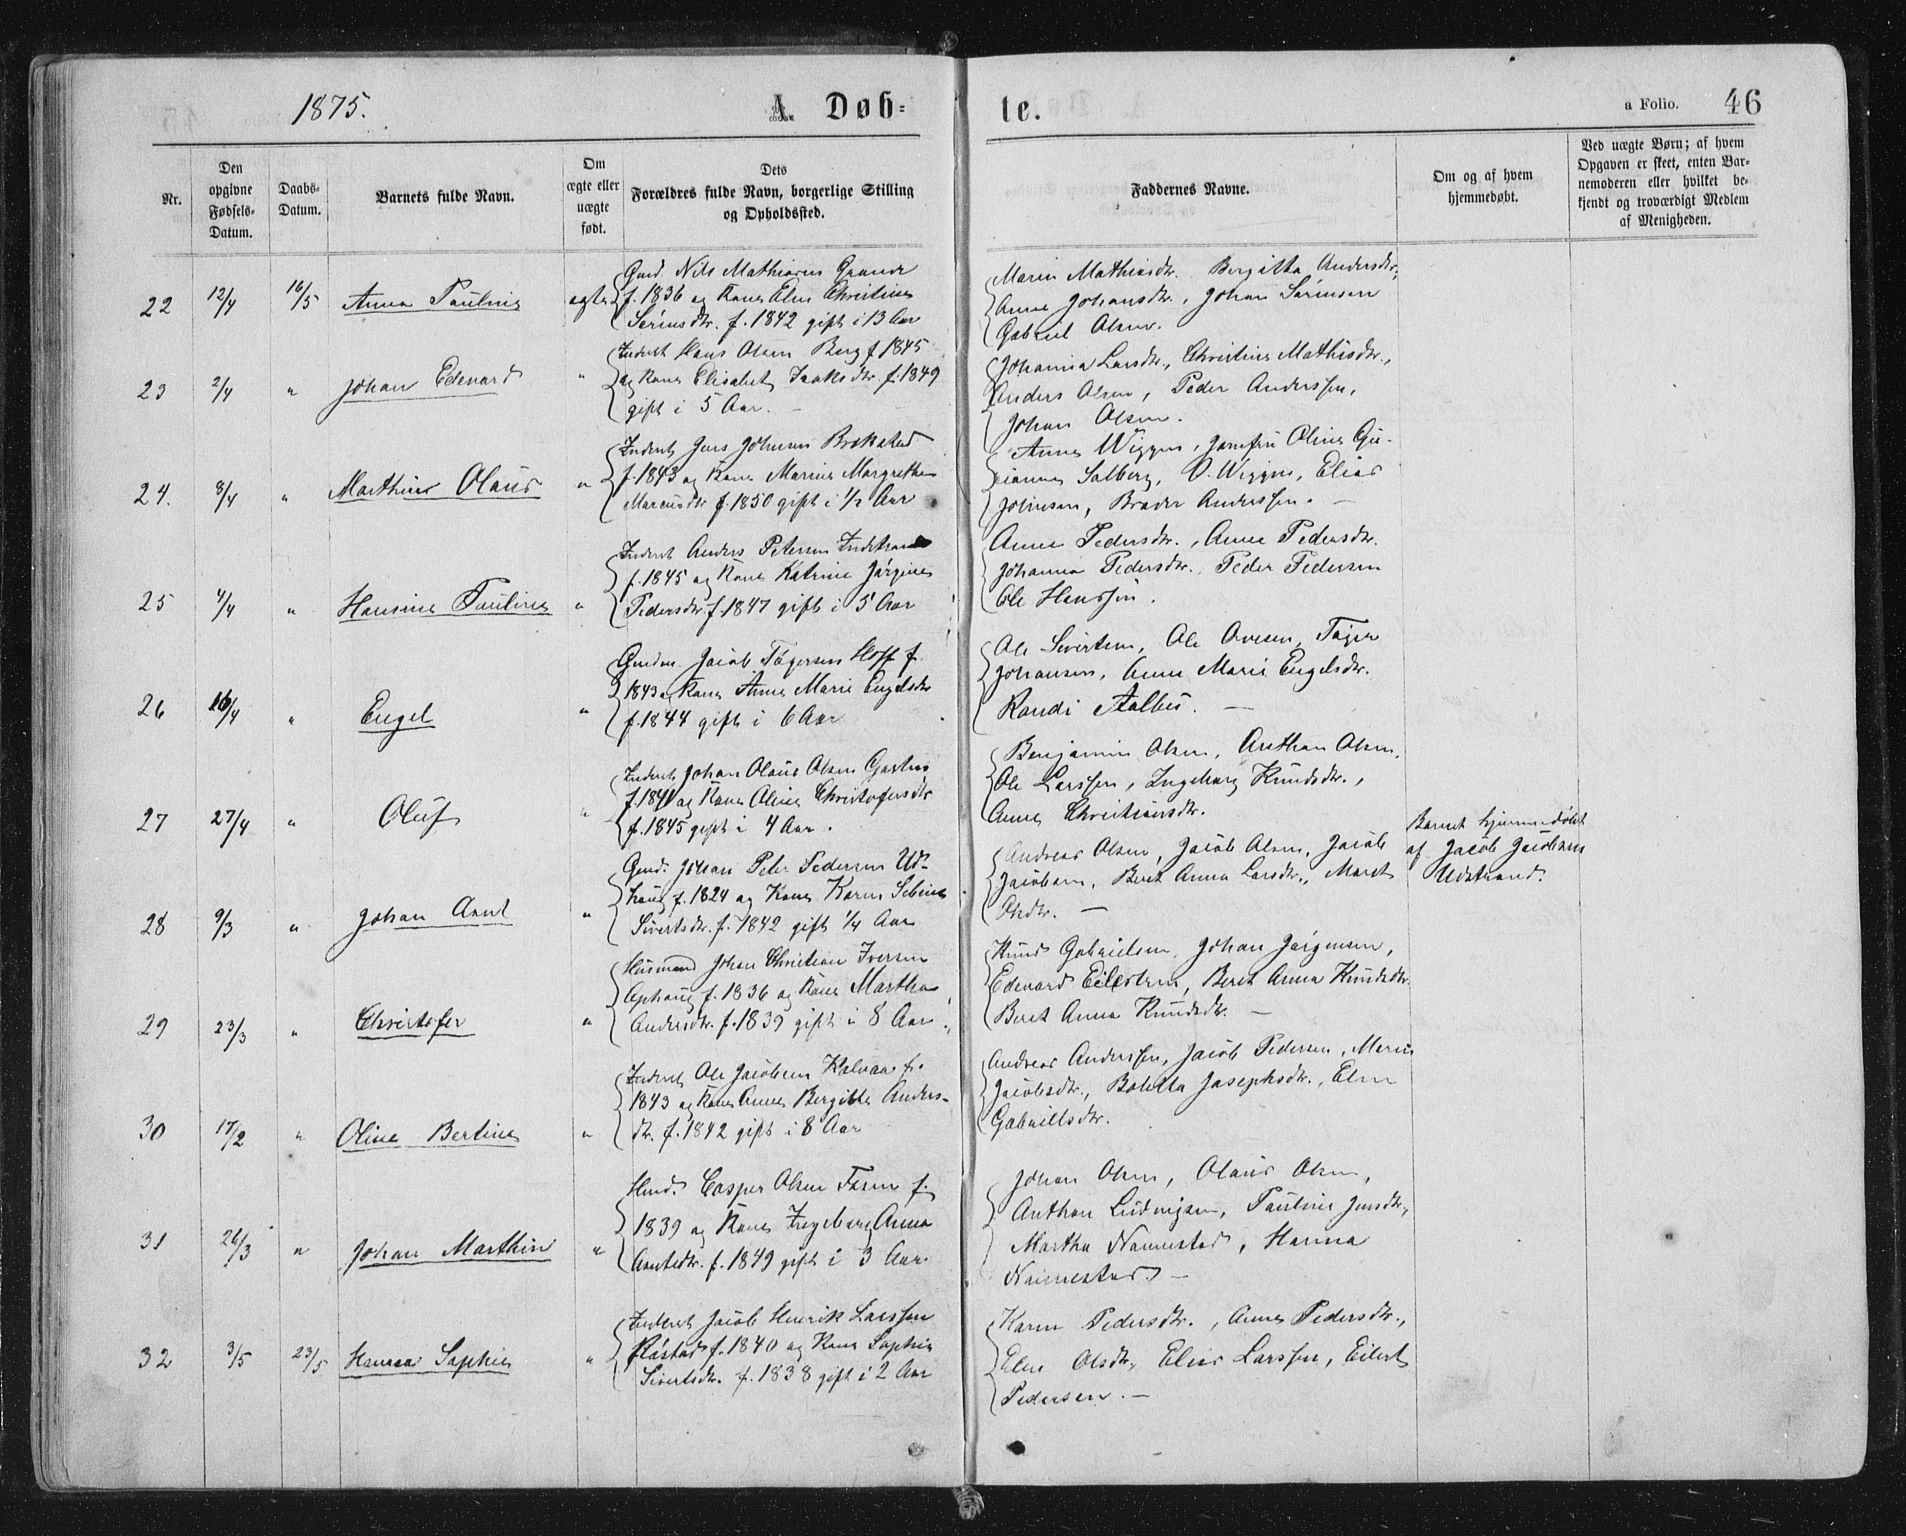 1875.
A. Døb-
te.
a Folio.
46
Nr.
Den opgivne Fødsels-Datum.
Daabs-Datum.
Barnets fulde Navn.
Om ægte eller uægte født.
Dets Forældres fulde Navn, borgerlige Stilling og Opholdssted.
Faddernes Navne.
Om og af hvem hjemmedøbt.
Ved uægte Børn; af hvem Opgaven er skeet, enten Barnemoderen eller hvilket bekjendt og troværdigt Medlem af Menigheden.
22 12/4 16/5 Anna Pauline ægte
Gmd. Nils Mathiasen Grande
f. 1836 og Kone Elen Christine
Sørensdtr. f. 1842 gift i 13 Aar
Maria Mathiasdtr. Bergitta Andersdtr.,
Anne Johansdtr., Johan Sørensen
Gabriel Olsen.
23 2/4 " Johan Edevard "
Inderst Hans Olsen Berg f 1845
og Kone Elisabet Isaksdtr. f. 1849
gift i 5 Aar. –
Johanna Larsdtr., Christine Mathisdtr.,
Anders Olsen, Peder Anderssen,
Johan Olsen.
24. 8/4 " Marthin Olaus "
Inderst Jens Johnsen Brekstad
f. 1843 og Kone Marie Margrethe
Marcusdtr f. 1850 gift i 1/2 Aar
Anne Wiggen, Jomfru Oline Gu-
Salberg, O. Wiggen, Elias
Johnsen, Broder Anderssen. –
25 4/4 " Hansine Pauline "
Inderst Anders Petersen Indstrand
f. 1845 og Kone Katrine Jørgine
Pedersdtr. f. 1847 gift i 5 Aar
Anne Pedersdtr., Anne Pedersdtr.
Johanna Pedersdtr. Peder Pedersen
Ole Hanssen.
26 16/4 " Engel "
Gmdm. Jacob Tøgersen Hoff f.
1843 og Kone Anne Marie Engelsdtr
f. 1844 gift i 6 Aar
Ole Sivertsen, Ole Ovesen, Tøger
Johansen, Anne Marie Engelsdtr.
Randi Aalbu. –
27 27/4 " Oluf "
Inderst Johan Olaus Olsen
f. 1841 og Kone Oline Christofersdtr
f. 1845 gift i 4 Aar.
Benjamin Olsen, Anthon Olsen,
Ole Larssen, Ingeborg Knudsdtr.,
Anne Christiansdtr.
28 9/3 " Johan Arnt "
Gmd. Johan Peter Pedersen Ud-
haug f. 1824 og Kone Karen Sebine
Sivertsdtr. f. 1842 gift 1/4 Aar
Andreas Olsen, Jacob Olsen, Jacob
Jacobsen, Beret Anna Larsdtr., Maret
Olsdtr. –
Barnet hjemmedøbt
af Jacob Jacobsen
Udstrand.
29 23/3 " Christofer "
Husmand Johan Christian Iversen
Ophaug f. 1836 og Kone Martha
Andersdtr. f. 1839 gift i 8 Aar.
Knud Gabrielsen, Johan Jørgensen,
Edevard Eilertsen, Beret Anna Knudsdtr.
Beret Anna Knudsdtr. –
30 17/2 " Oline Bertine "
Inderst Ole Jacobsen Kalvaa f.
1843 og Kone Anne Bergitte Anders-
dtr. f. 1842 gift i 8 Aar
Andreas Anderssen, Jacob Pedersen, Maria
Jacobsdtr., Boletta Josephsdtr., Elen
Gabrielsdtr.
31 26/3 " Johan Marthin "
Hmd. Casper Olsen f.
1839 og Kone Ingeborg Anna
Arntsdtr. f. 1849 gift i 3 Aar.
Johan Olsen, Olaus Olsen,
Anthon Ludvigsen, Pauline Jensdtr.,
Martha Nannestad, Hanna
Nannestad. –
32 3/5 23/5 Hanna Sophie "
Inderst Jacob Henrik Larssen
Røstad f. 1840 og Kone Sophie
Sivertsdtr. f. 1838 gift i 2 Aar
Karen Pedersdtr., Anne Pedersdtr.,
Elen Olsdtr., Elias Larssen, Eilert
Pedersen. –